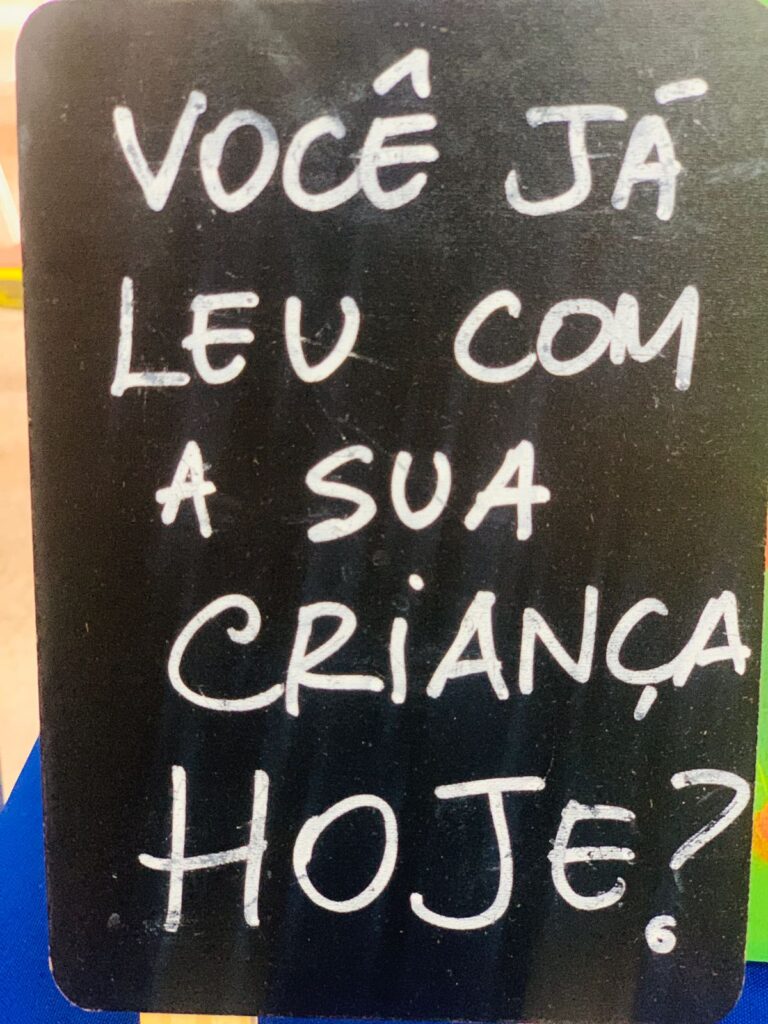 VOCÊ JÁ
LEU COM
A SUA
CRIANÇA
HOJE?